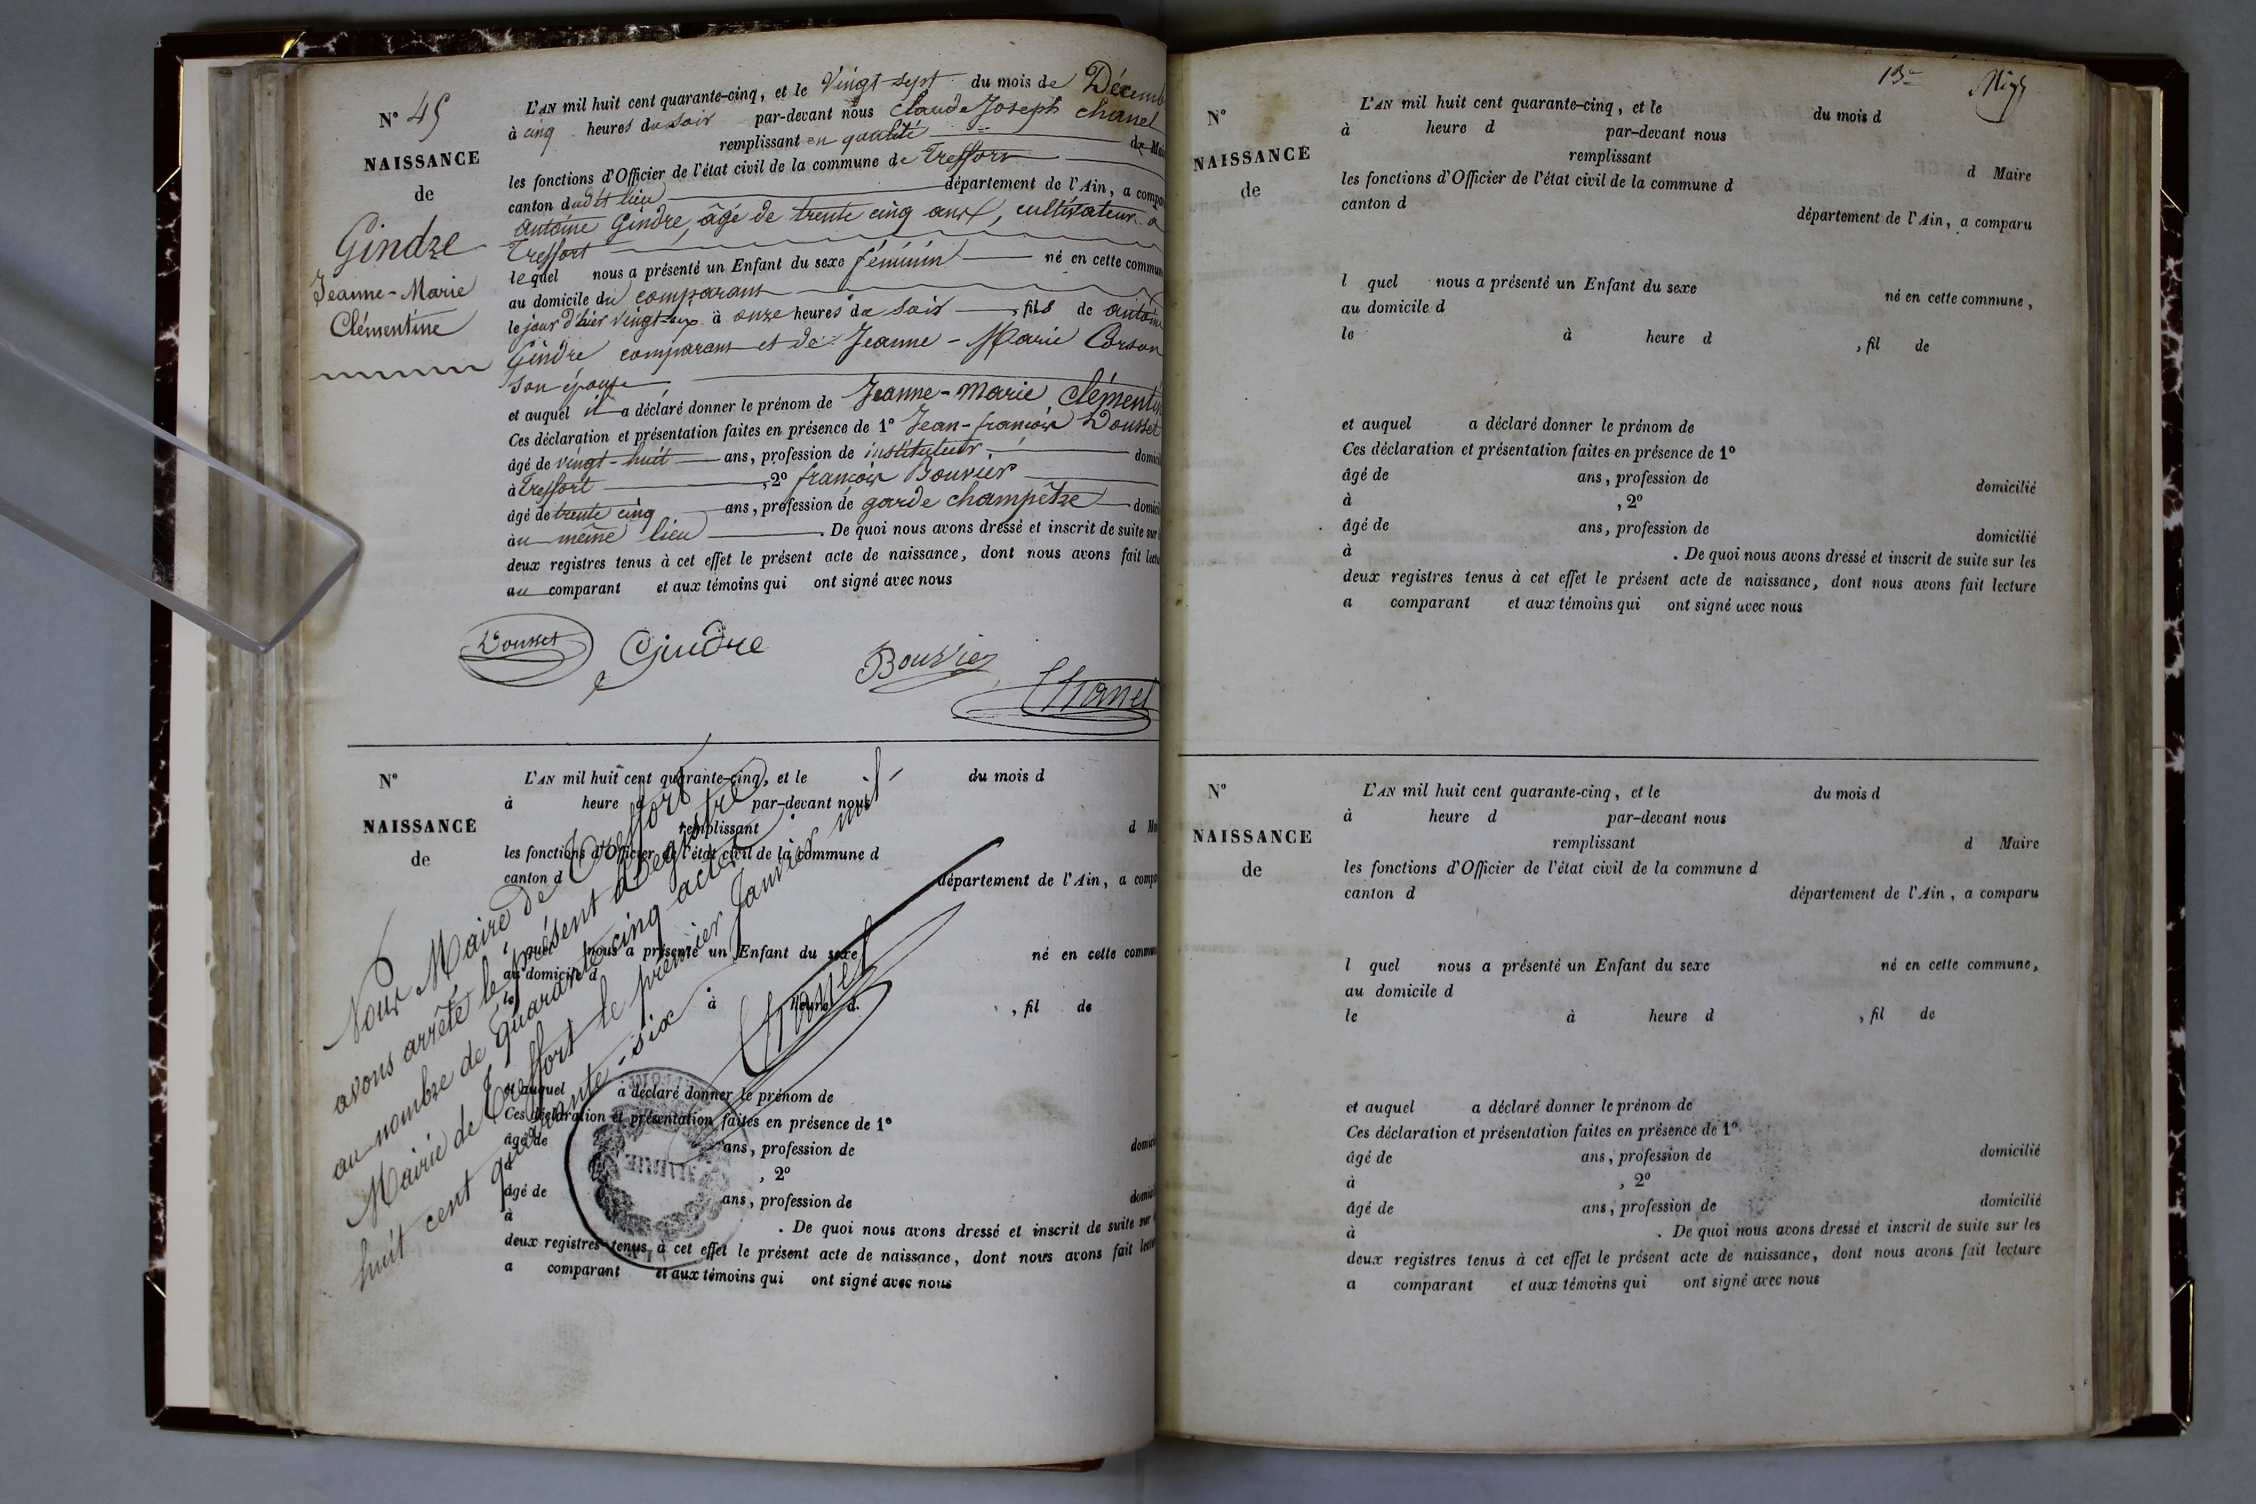 N° 45
NAISSANCE
de
Gindre
Jeanne-Marie
Clémentine
L'AN mil huit cent quarante-cinq, et le Vingt-sept du mois de Décemb
à cinq heures du soir par-devant nous Claude Joseph Chanel
remplissant en qualité de Mai
les fonctions d'Officier de l'état civil de la commune de Treffort
canton dudit lieu département de l'Ain, a compa
Antoine Gindre, âgé de trente cinq ans, cultivateur à
Treffort
lequel nous a présenté un Enfant du sexe féminin né en cette commun
au domicile du comparant
le jour d'hier vingt-six à onze heures du soir, fils de antoine
Gindre comparant et de Jeanne-Marie Corson
son épouse
et auquel il a déclaré donner le prénom de Jeanne-Marie Clémentin
Ces déclaration et présentation faites en présence de 1° Jean-françois Dousset
âgé de vingt-huit ans, profession de instituteur, domicil
à Treffort, 2° françois Bouvier
âgé de trente cinq ans, profession de garde champêtre domici
au même lieu. De quoi nous avons dressé et inscrit de suite sur
deux registres tenus à cet effet le présent acte de naissance, dont nous avons fait lectu
au comparant et aux témoins qui ont signé avec nous
Dousset Gindre Bouvier Chanel
N°
NAISSANCE
de
L'AN mil huit cent quarante-cinq, et le du mois d
à heure d par-devant nous
remplissant d Ma
les fonctions d'Officier de l'état civil de la commune d
canton d département de l'Ain, a compa
l quel nous a présenté un Enfant du sexe né en cette commun
au domicile d
le à heure d , fil de
et auquel a déclaré donner le prénom de
Ces déclaration et présentation faites en présence de 1°
âgé de ans, profession de domici
à , 2°
âgé de ans, profession de domici
à . De quoi nous avons dressé et inscrit de suite sur
deux registres tenus à cet effet le présent acte de naissance, dont nous avons fait lectu
a comparant et aux témoins qui ont signé avec nous
Nous Maire de Treffort
avons arrêté le présent Registre
au nombre de Quarante cinq actes.
Mairie de Treffort le premier Janvier mil
huit cent quarante-six
Chanel
MAIRIE
13e
N°
NAISSANCE
de
L'AN mil huit cent quarante-cinq, et le du mois d
à heure d par-devant nous
remplissant d Maire
les fonctions d'Officier de l'état civil de la commune d
canton d département de l'Ain, a comparu
l quel nous a présenté un Enfant du sexe né en cette commune,
au domicile d
le à heure d , fil de
et auquel a déclaré donner le prénom de
Ces déclaration et présentation faites en présence de 1°
âgé de ans, profession de domicilié
à , 2°
âgé de ans, profession de domicilié
à . De quoi nous avons dressé et inscrit de suite sur les
deux registres tenus à cet effet le présent acte de naissance, dont nous avons fait lecture
a comparant et aux témoins qui ont signé avec nous
N°
NAISSANCE
de
L'AN mil huit cent quarante-cinq, et le du mois d
à heure d par-devant nous
remplissant d Maire
les fonctions d'Officier de l'état civil de la commune d
canton d département de l'Ain, a comparu
l quel nous a présenté un Enfant du sexe né en cette commune,
au domicile d
le à heure d , fil de
et auquel a déclaré donner le prénom de
Ces déclaration et présentation faites en présence de 1°
âgé de ans, profession de domicilié
à , 2°
âgé de ans, profession de domicilié
à . De quoi nous avons dressé et inscrit de suite sur les
deux registres tenus à cet effet le présent acte de naissance, dont nous avons fait lecture
a comparant et aux témoins qui ont signé avec nous